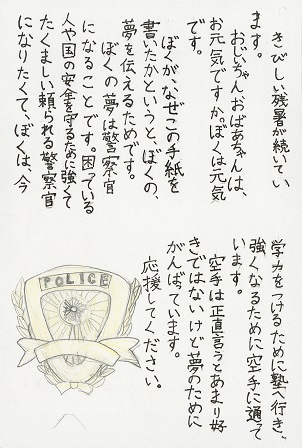 きびしい残暑が続いてい
ます。
おじいちゃん、おばあちゃんは、
お元気ですか。ぼくは元気
です。
ぼくが、なぜこの手紙を
書いたかというと、ぼくの、
夢を伝えるためです。
ぼくの夢は警察官
になることです。困っている
人や国の安全を守るために強くて
たくましい頼られる警察官
になりたくて、ぼくは、今
学力をつけるために塾へ行き、
強くなるために空手に通って
います。
空手は正直言うとあまり好
きではないけど夢のために
がんばっています。
応援してください。
POLICE